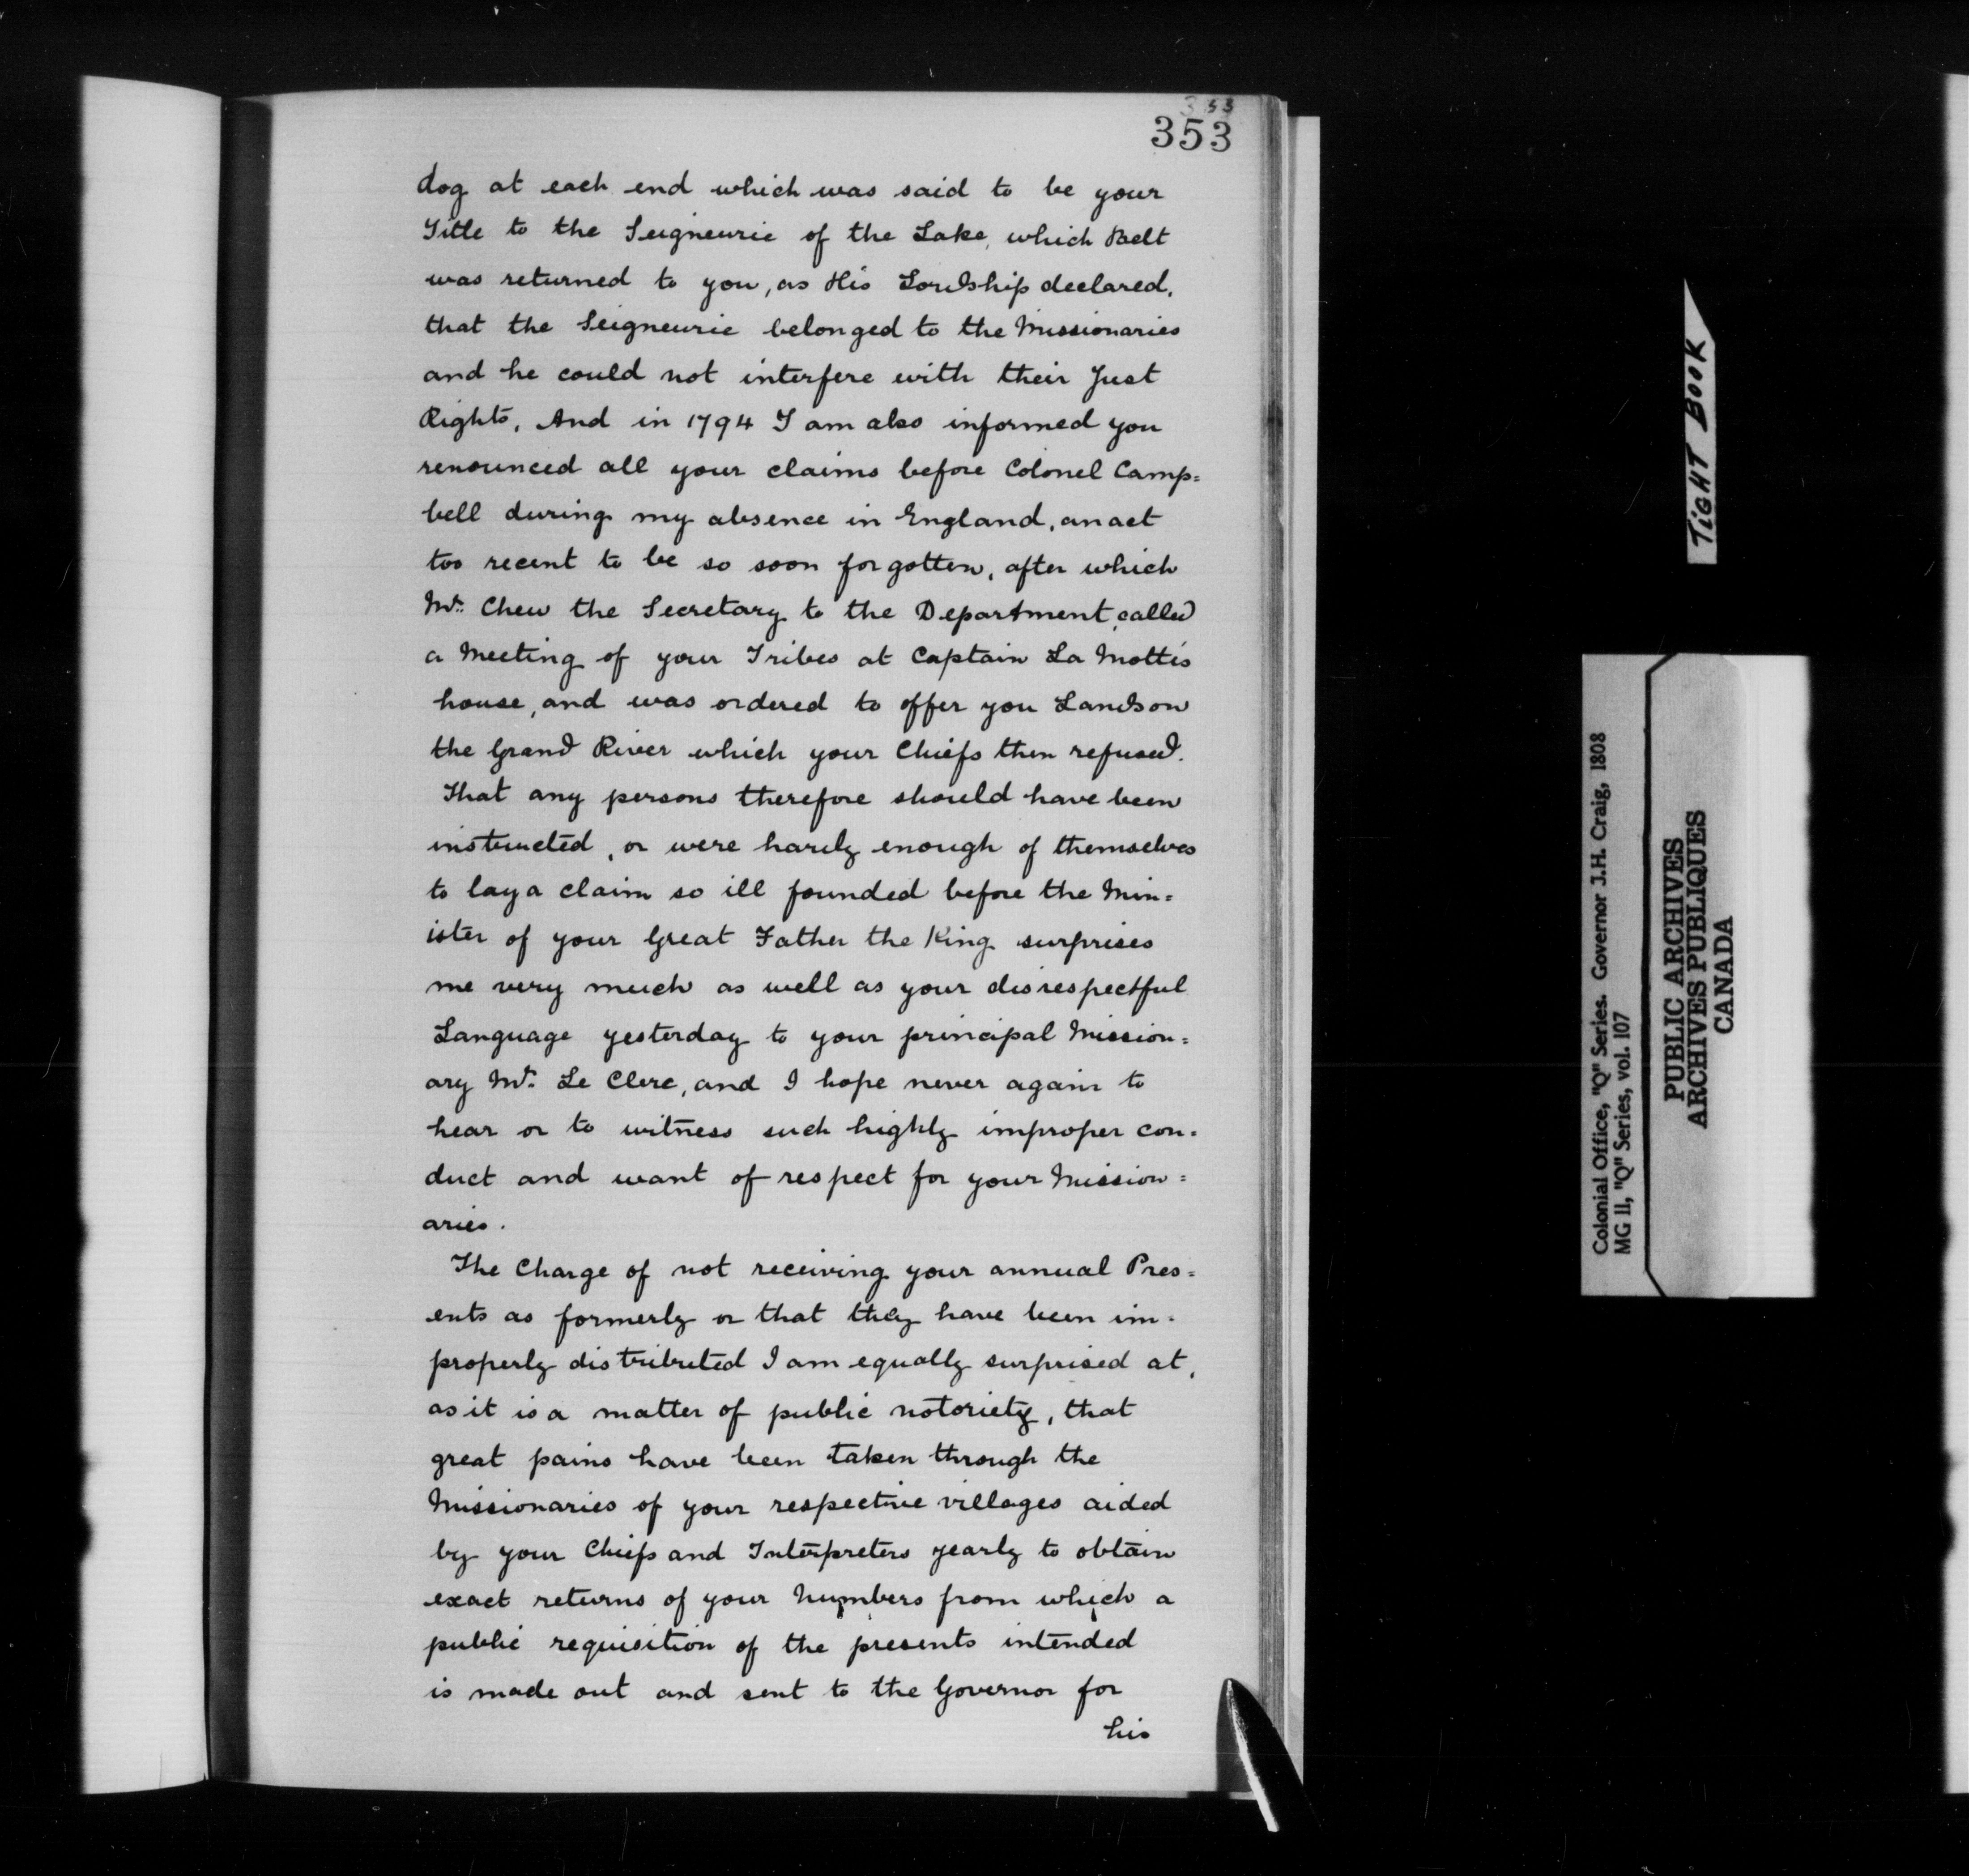 353
353
dog at each end which was said to be your
Title to the Seigneurie of the Lake, which Belt
was returned to you, as His Lordship declared,
that the Seigneurie belonged to the Missionaries
and he could not interfere with their Just
Rights, And in 1794 I am also informed you
renounced all your claims before Colonel Camp=
bell during my absence in England, an act
too recent to be so soon forgotten, after which
Mr. Chew the Secretary to the Department, called
a Meeting of your Tribes at Captain La Motte's
house, and was ordered to offer you Lands on
the Grand River which your Chiefs then refused.
That any persons therefore should have been
instructed, or were hardy enough of themselves
to lay a claim so ill founded before the Min=
ister of your Great Father the King surprises
me very much as well as your disrespectful
Language yesterday to your principal Mission=
ary Mr. Le Clerc, and I hope never again to
hear or to witness such highly improper con=
duct and want of respect for your Mission=
aries.
The Charge of not receiving your annual Pres=
ents as formerly or that they have been im=
properly distributed I am equally surprised at,
as it is a matter of public notoriety, that
great pains have been taken through the
Missionaries of your respective villages aided
by your Chiefs and Interpreters yearly to obtain
exact returns of your Numbers from which a
public requisition of the presents intended
is made out and sent to the Governor for
his
TIGHT BOOK
Colonial Office, "Q" Series. Governor J.H. Craig, 1808
MG 11, "Q" Series, vol. 107
PUBLIC ARCHIVES
ARCHIVES PUBLIQUES
CANADA